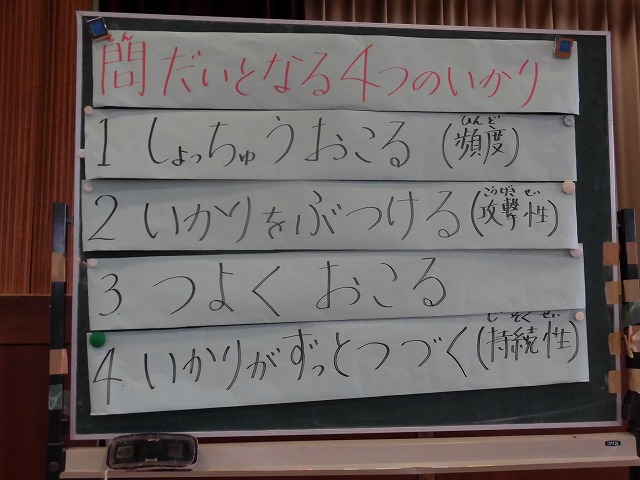 もん
問だいとなる4つのいかり
ひんど
1 しょっちゅうおこる(頻度)
こうげきせい
2 いかりをぶつける(攻撃性)
3 つよくおこる
じぞくせい
4 いかりがずっとつづく(持続性)